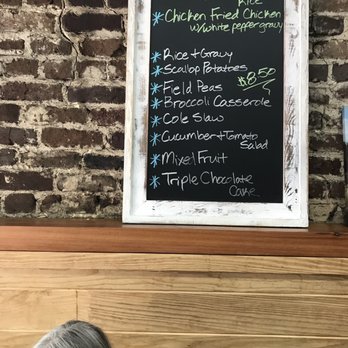 Rice
* Chicken Fried Chicken
w/white pepper gravy
* Rice + Gravy
* Scallop Potatoes
* Field Peas
$8.50
* Broccoli Casserole
* Cole Slaw
* Cucumber + Tomato
Salad
* Mixed Fruit
* Triple Chocolate
Cake